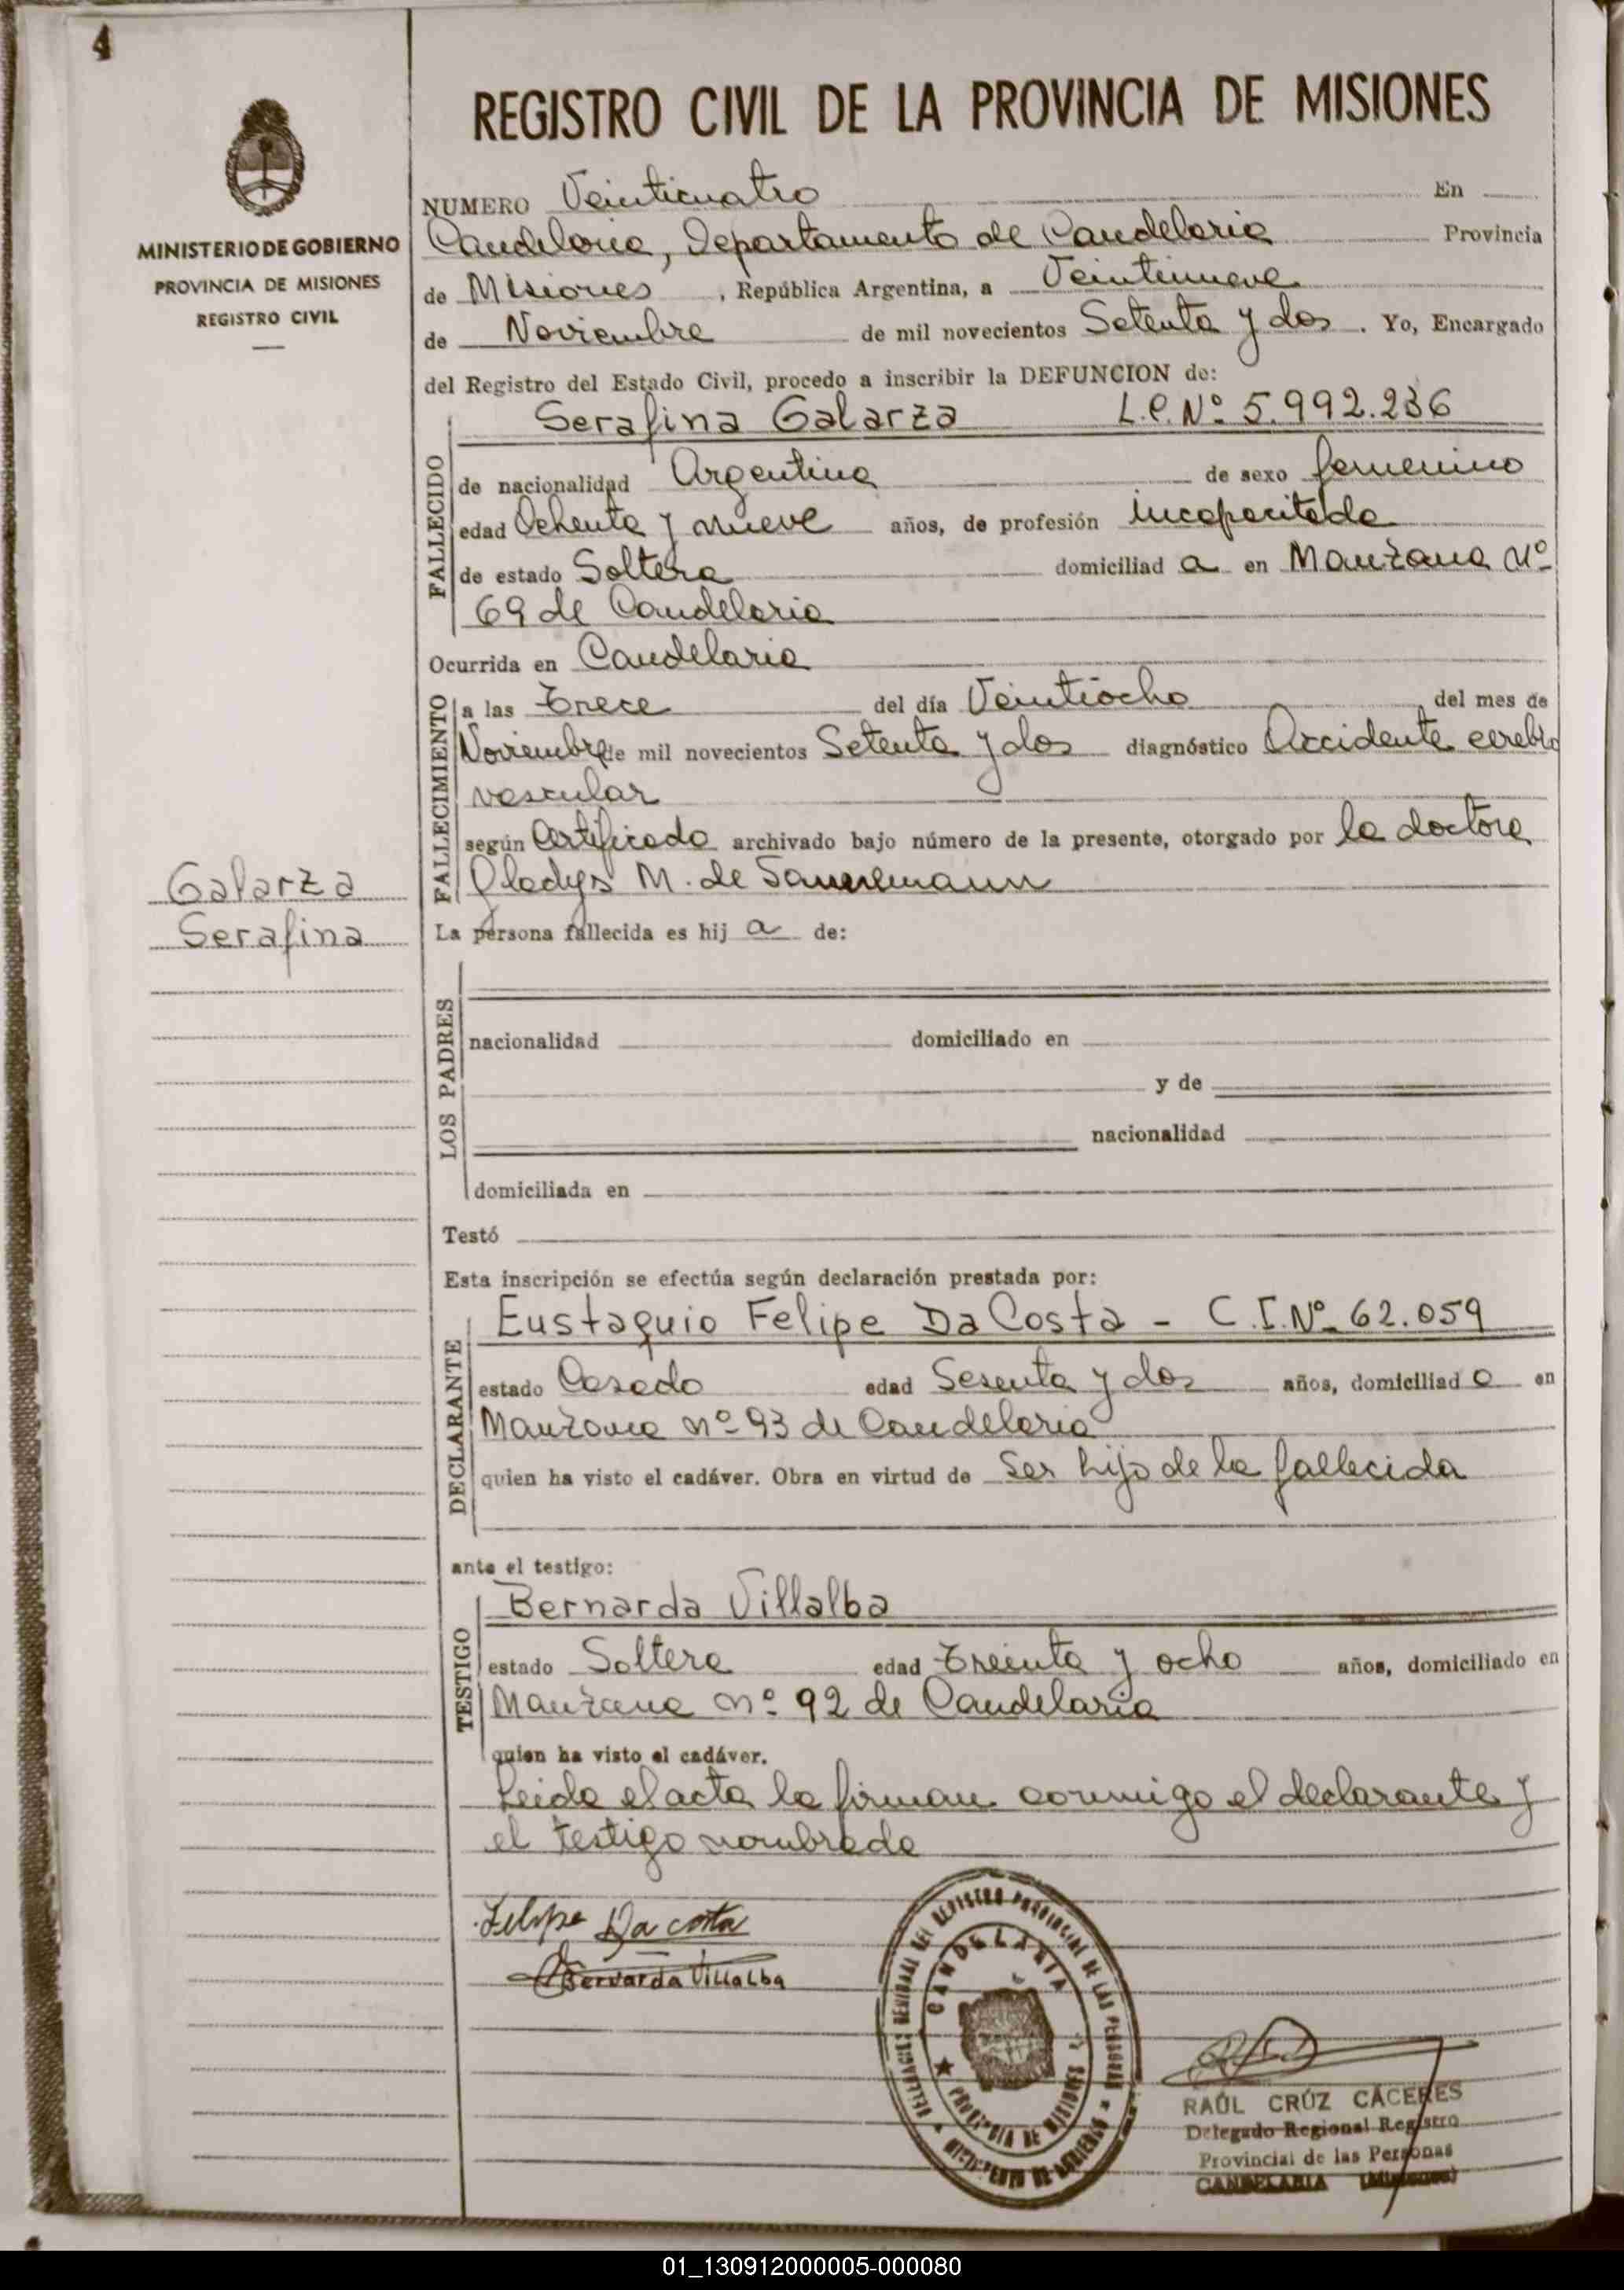 4
MINISTERIO DE GOBIERNO
PROVINCIA DE MISIONES
REGISTRO CIVIL
Galarza
Serafina
REGISTRO CIVIL DE LA PROVINCIA DE MISIONES
NUMERO Veinticuatro En
Candelaria, Departamento de Candelaria Provincia
de Misiones, República Argentina, a Veintinueve
de Noviembre de mil novecientos Setenta y dos. Yo, Encargado
del Registro del Estado Civil, procedo a inscribir la DEFUNCION de:
FALLECIDO
Serafina Galarza L.C. Nº 5.992.236
de nacionalidad Argentina de sexo femenino
edad Ochenta y nueve años, de profesión incapacitada
de estado Soltera domiciliad a en Manzana Nº
69 de Candelaria
Ocurrida en Candelaria
FALLECIMIENTO
a las Trece del día Veintiocho del mes de
Noviembre de mil novecientos Setenta y dos diagnóstico Accidente cerebro
vascular
según Certificado archivado bajo número de la presente, otorgado por la doctora
Gladys M. de
La persona fallecida es hij a de:
LOS PADRES
nacionalidad domiciliado en
y de
nacionalidad
domiciliada en
Testó
Esta inscripción se efectúa según declaración prestada por:
DECLARANTE
Eustaquio Felipe Da Costa - C.I. Nº 62.059
estado Casado edad Sesenta y dos años, domiciliad o en
Manzana nº 93 de Candelaria
quien ha visto el cadáver. Obra en virtud de Ser hijo de la fallecida
ante el testigo:
TESTIGO
Bernarda Villalba
estado Soltera edad Treinta y ocho años, domiciliado en
Manzana nº 92 de Candelaria
quien ha visto el cadáver.
Leida el acta la firman conmigo el declarante y
el testigo nombrado
Felipe Da costa
Bernarda Villalba
CANDELARIA
PROVINCIA DE MISIONES
RAÚL CRÚZ CÁCERES
Delegado Regional Registro
Provincial de las Personas
CANDELARIA (Misiones)
01_130912000005-000080